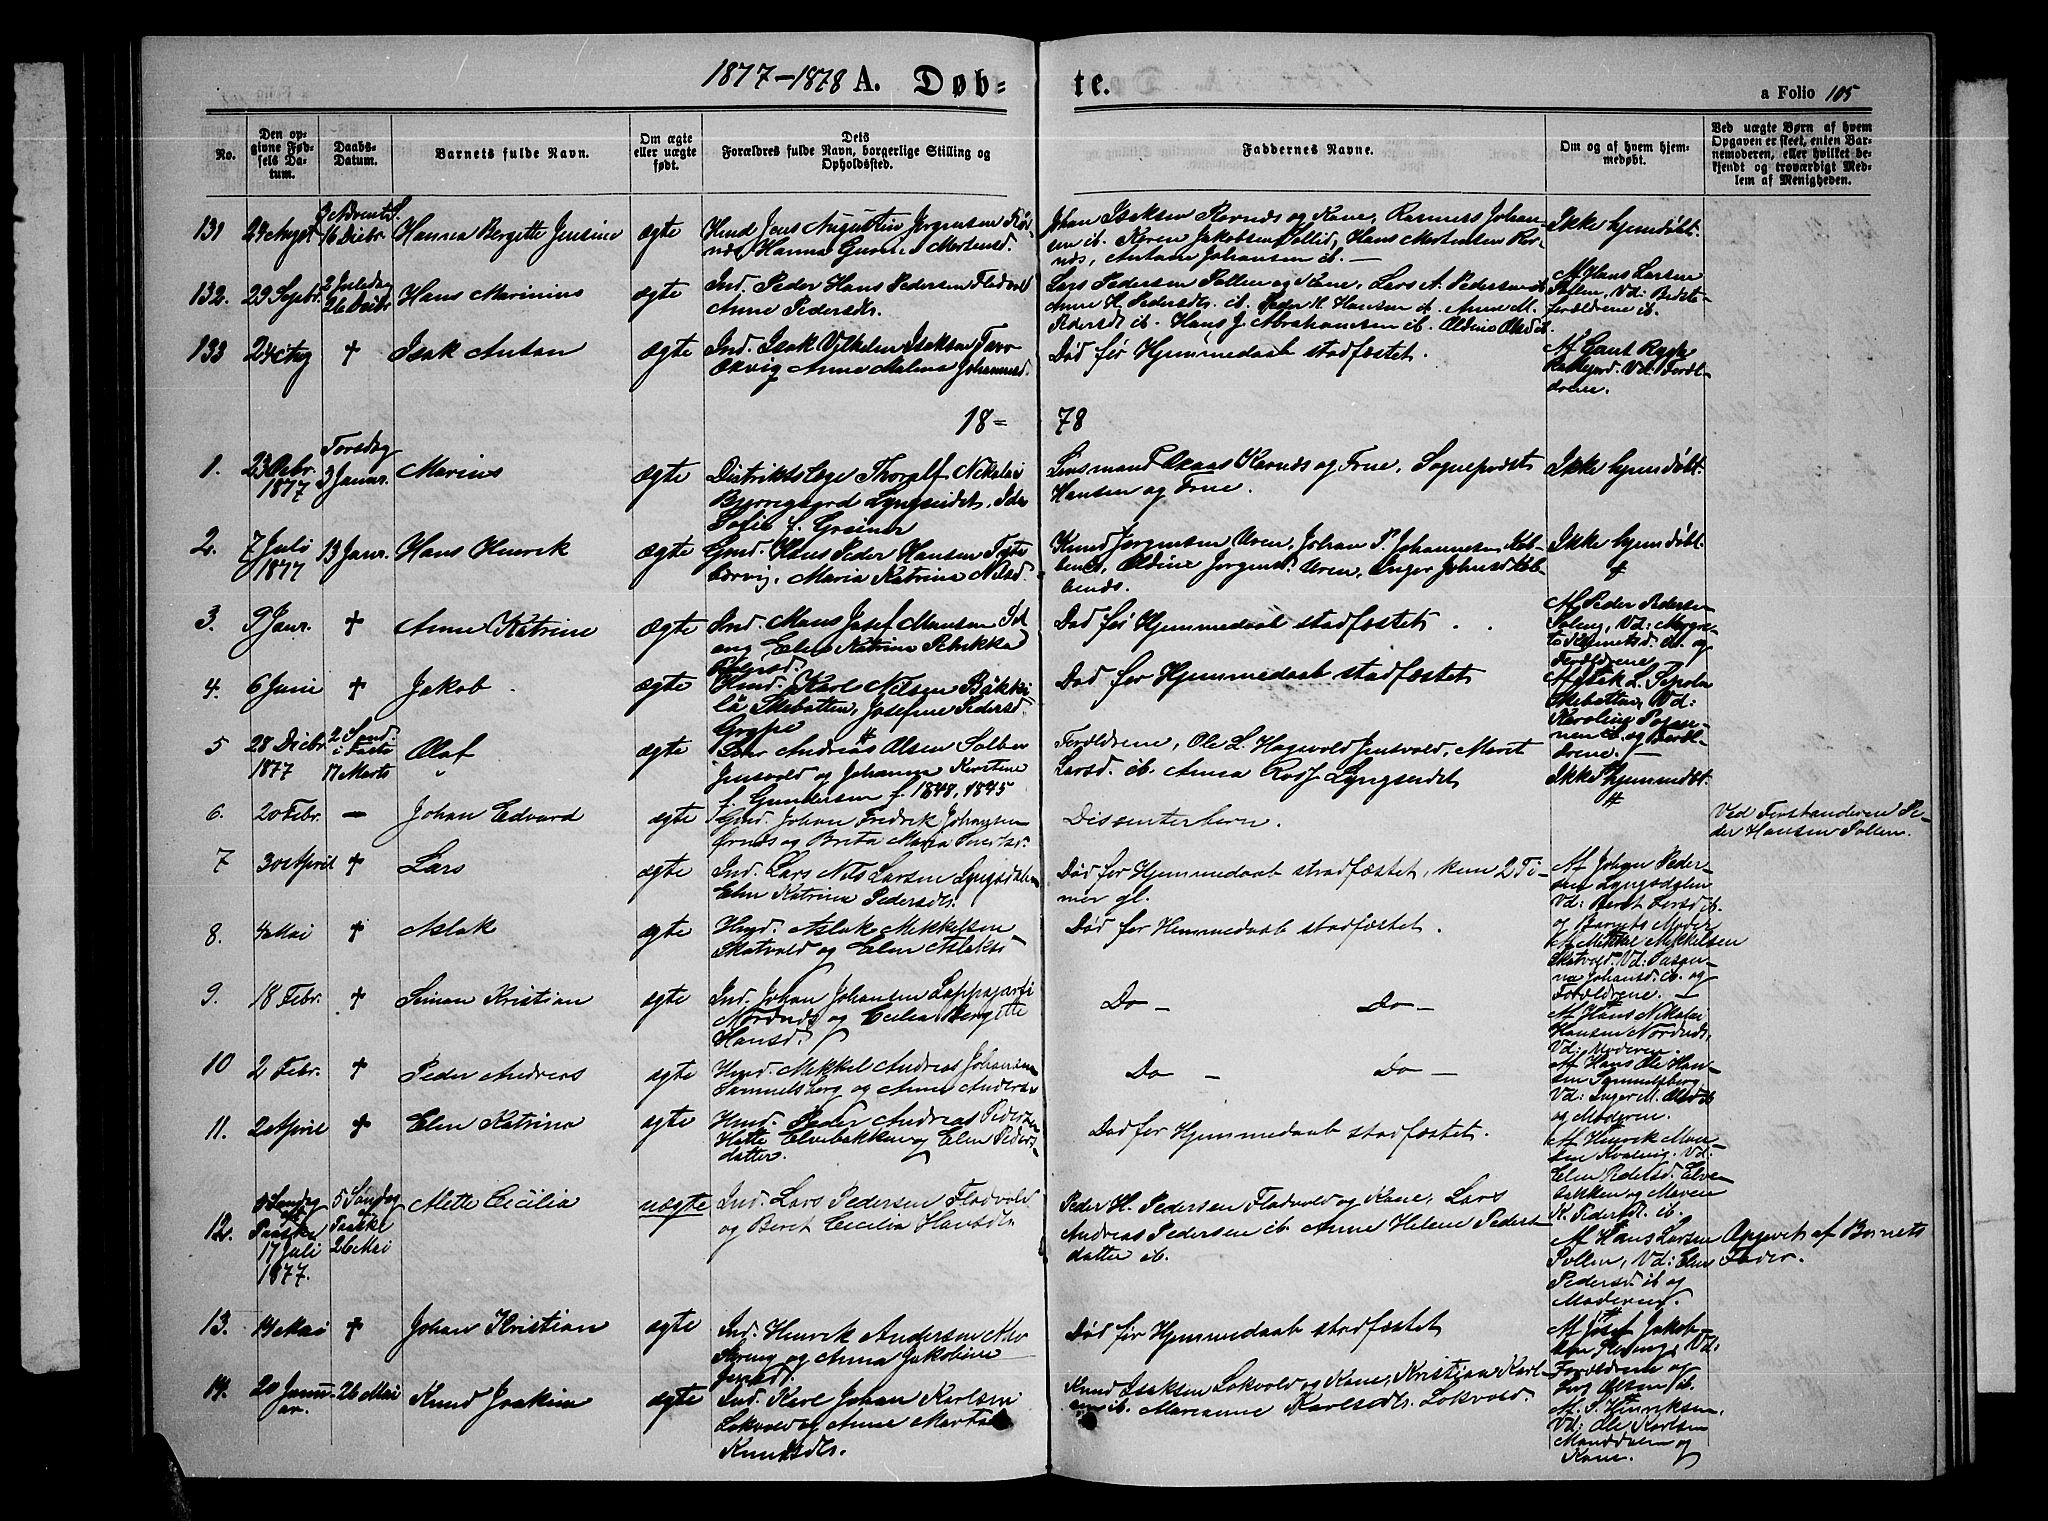 1877-1878 A. Døb=
te.
a Folio 105
No.
Den op=
givne Fød=
sels Da=
tum.
Daabs=
Datum.
Barnets fulde Navn.
Om ægte
eller uægte
født.
Dets
Forældres fulde Navn, borgerlige Stilling og
Opholdssted.
Faddernes Navne.
Om og af hvem hjem=
medøbt.
Ved uægte Børn af hvem
Opgaven er skeet, enten Bar=
nemoderen, eller hvilket be=
kjendt og troværdigt Med=
lem af Menigheden.
131
24 Augst
3 Advents S.
16 Decbr
Hanna Bergette Jensine
ægte
Hmd Jens Augustin Jørgensen
Hanna Mortensd.
Johan Isaksen Rornæs og Kone, Rasmus Johan-
sen ib. Karen Jakobsen Hans Mortensen Ror-
næs, Antone Johansen ib. —
Ikke hjemdøbt.
132.
29 Septbr.
2 Juledag
26 Decbr
Hans Marinius
ægte
Ind. Peder Hans Pedersen Fladvold
Anne Pedersdr.
Lars Pedersen Pollen og Kone, Lars A. Pedersen ib.
Anne H. Pedersdr. ib. Peder H. Hansen ib. Anne M.
Pedersd ib. Hans J. Abrahamsen ib. Oldine Olsd ib.
Af Hans Larsen
Pollen, Vd: Bedste-
forældrene ib.
133
24 Aug
†
Isak Anton
Ægte
Ind. Isak Vilhelm Isaksen
Anne Malena Johannesd.
Død før Hjemmedaab stadfæstet.
Af Gunt
Vd: Foræl-
drene.
18=
78
1.
23 Osbr.
1877
Torsdag
3 Januar.
Marius
Ægte
Distriktslæge Thoralf Nikolai
Bjerregaard Lyngseidet, Ida
Sofie f. Greiner
Lensmand Oxaas Karnæs og Frue, Sogneprest
Hansen og Frue.
Ikke hjemdøbt.
2.
7 Juli
1877
13 Janr.
Hans Henrik
Ægte
Gmd. Hans Peder Hansen
Maria Katrine Nilsd.
Knud Jørgensen Uren, Johan P. Johannesen Kob-
benes, Oldine Jørgensd. Uren, Inger Johnsd Kob-
benæs.
Ikke hjemdøbt.
3.
9 Janr.
†
Anne Katrine
Ægte
Ind. Mons Josef Monsen
Elen Katrina Rebekka
Pedersd.
Død før Hjemmedaab stadfæstet.
Af Peder Pedersen
Vd: Margre-
ib. og
Forældrene
4.
6 Juni
†
Jakob.
ægte
Hmd. Karl Nilsen
Skibotten, Josefine Pedersd.
Død før Hjemmedaab stadfæstet
Af Isak L.
Skibotten, Vd:
Karoline
ib. og Foræl-
drene. —
5
28 Decbr
1877
2 Sønd.
i Faste
17 Marts
Olaf
ægte
Andreas Olsen
Jensvold og Johanna Kirstine
f. Gundersen f. 1848, 1845
Forældrene, Ole L. Hagevold Jensvold, Maret
Larsd. ib. Anna Lyngseidet
Ikke hjemmedøbt.
6.
20 Febr.
—
Johan Edvard
ægte
Gmd. Johan Fredrik Johansen
og Brita Maria
Dissenterbarn.
Ved Forstanderen Pe-
der Hansen Pollen.
7
30 April
†
Lars
ægte
Ind. Lars Nils Larsen Lyngsdalen
Elen Katrina Pedersdr.
Død før Hjemmedaab stadfæstet, kun 2 Ti-
mer gl.
Af Johan Peder-
sen Lyngsdalen
Vd: Beret Larsd ib.
og Barnets Moder
8.
4 Mai
†
Aslak
ægte
Hmd. Aslak Mikkelsen
Skatvold og Elen Aslaksd
Død før Hjemmedaab stadfæstet.
Af Mikkel Mikkelsen
Skatvold. Vd:
Johansd. ib. og
Forældrene. —
9.
18 Febr.
†
Simon Kristian
ægte
Ind. Johan Johansen
Nordnæs og Cecilia Bergitte
Hansd.
Do — Do —
Af Hans Nikolai
Hansen Nordnæs,
Vd: Moderen. —
10
2 Febr.
†
Peder Andreas
ægte
Hmd. Mikkel Andreas Johansen
Samuelsberg og Anne Andersd
Do — Do —
Af Hans Ole Han-
sen Samuelsberg,
Vd: Inger M. Olsd ib
og Moderen.
11.
2 April
†
Elen Katrina
ægte
Hmd. Peder Andreas Pedersen
Elvebakken og Elen Peders-
datter.
Død før Hjemmedaab stadfæstet.
Af Henrik Mon-
sen Kvalvig. Vd:
Elen Pedersd. Elve-
bakken og Maren
K. Pedersd. ib.
12.
17 Juli
1877.
5 Søndag
e.
Paaske
26 Mai
Mette Cecilia
uægte
Ind. Lars Pedersen Fladvold
og Beret Cecilia Hansdr
Peder H. Pedersen Fladvold og Kone, Lars
Andreas Pedersen ib. Anne Helene Peders-
datter ib.
Af Hans Larsen
Pollen, Vd: Elen
Pedersd. ib og
Moderen.
Opgivet af Barnets
Fader.
13.
14 Mai
†
Johan Kristian
ægte
Ind. Henrik Andersen
og Anna Jakobine
Jensd.
Død før Hjemmedaab stadfæstet
Af Josef Jakob-
sen Vd:
Forældrene og
Olsen ib.
14.
20 Janu-
ar.
26 Mai
Knud Joakim
ægte
Ind. Karl Johan Karlsen
Lokvold og Anne Marta
Knudsdr.
Knud Isaksen Lokvold og Kone, Kristian Karl-
sen ib. Marianne Karlsdr. Lokvold.
Af S. Henriksen.
Vd: Ole Karlsen
Manddalen og
Kone.